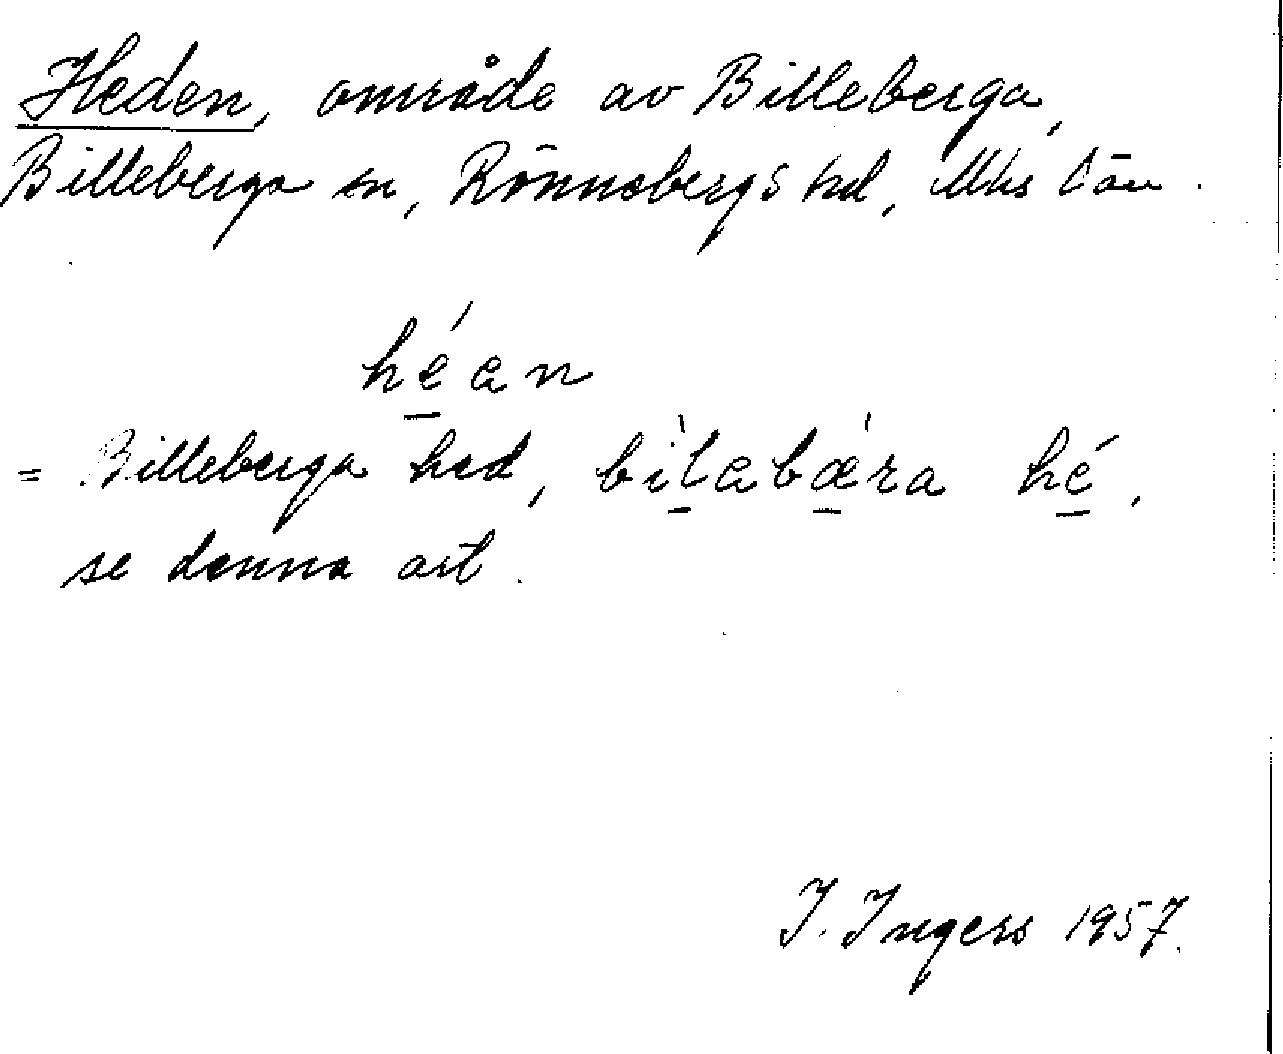 Heden, område av Billeberga,
Billeberga sn, Rönnebergs hd, Mhs län.
héan
= Billeberga hed, bìlabǽra hé,
se denna ort.
I. Ingers 1957.